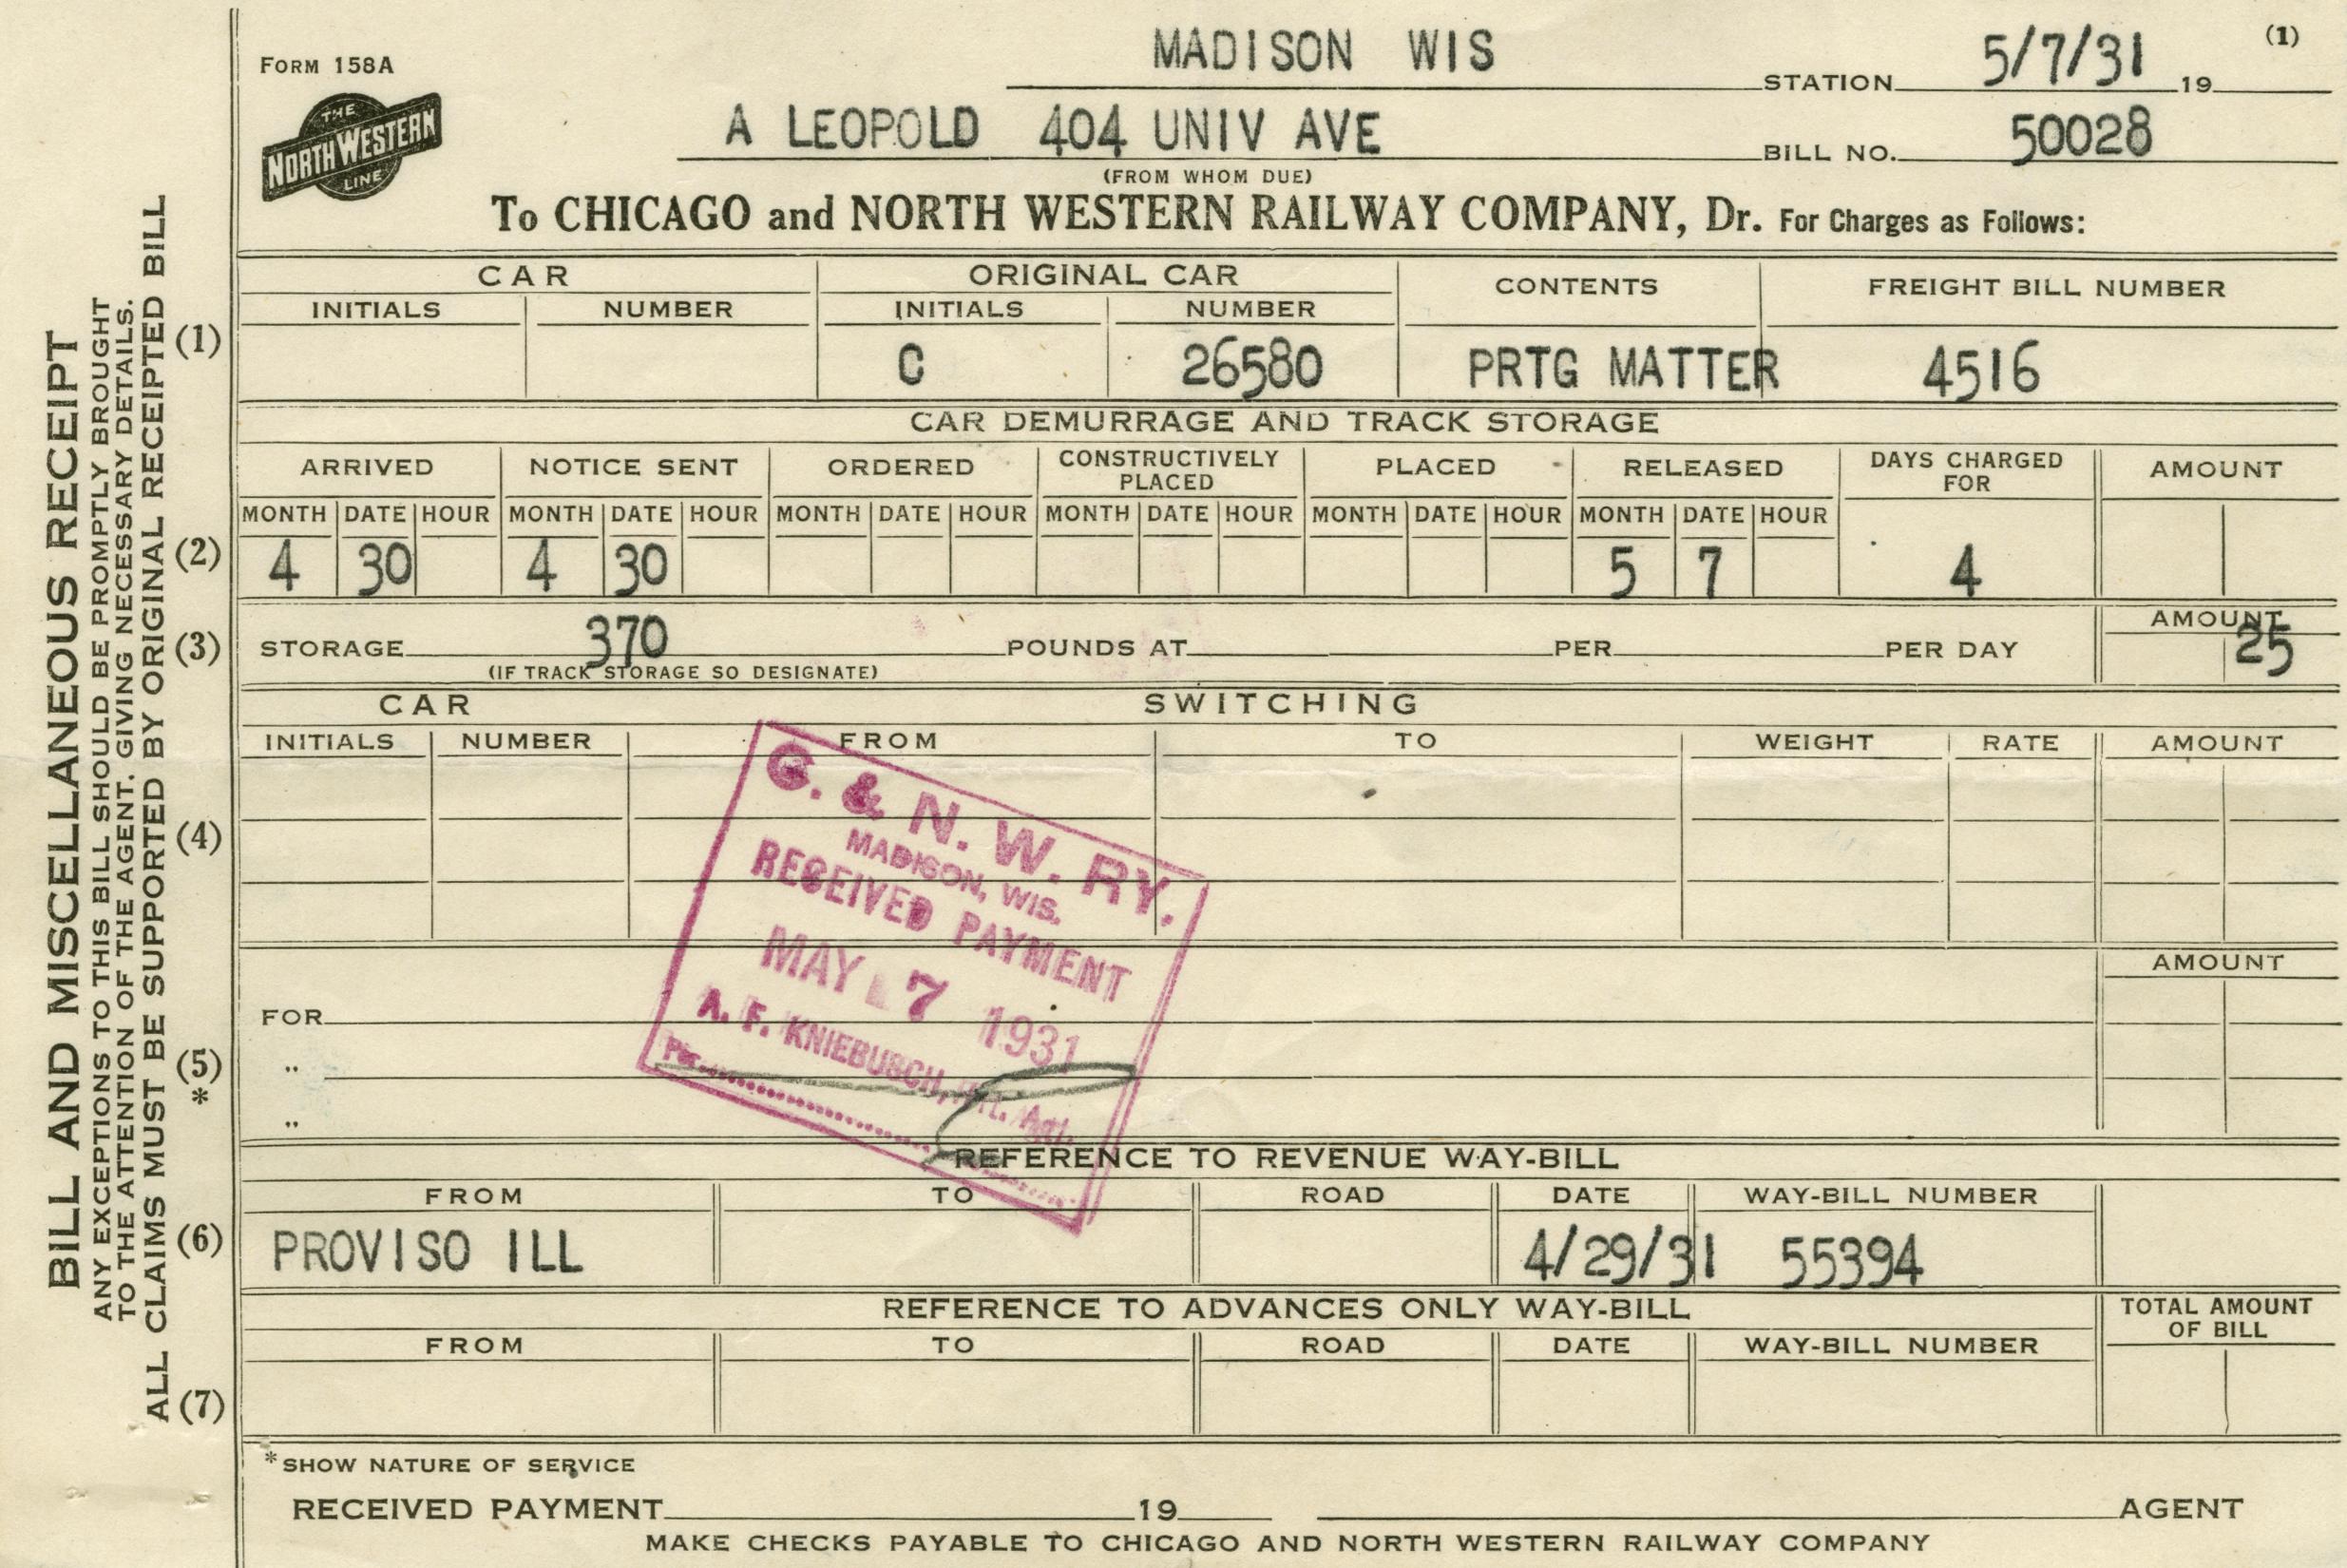 (1)
FORM 158A
MADISON WIS STATION 5/7/31 19
THE
NORTH WESTERN
LINE
A LEOPOLD 404 UNIV AVE BILL NO. 50028
(FROM WHOM DUE)
To CHICAGO and NORTH WESTERN RAILWAY COMPANY, Dr. For Charges as Follows:
CAR ORIGINAL CAR CONTENTS FREIGHT BILL NUMBER
INITIALS NUMBER INITIALS NUMBER
(1) C 26580 PRTG MATTER 4516
CAR DEMURRAGE AND TRACK STORAGE
ARRIVED NOTICE SENT ORDERED CONSTRUCTIVELY PLACED PLACED RELEASED DAYS CHARGED FOR AMOUNT
MONTH DATE HOUR MONTH DATE HOUR MONTH DATE HOUR MONTH DATE HOUR MONTH DATE HOUR MONTH DATE HOUR
(2) 4 30 4 30 5 7 4
AMOUNT
(3) STORAGE 370 POUNDS AT PER PER DAY 25
(IF TRACK STORAGE SO DESIGNATE)
CAR SWITCHING
INITIALS NUMBER FROM TO WEIGHT RATE AMOUNT
(4)
C. & N. W. RY.
MADISON, WIS.
RECEIVED PAYMENT
MAY 7 1931
A. F. KNIEBUSCH, Agt.
Per
AMOUNT
FOR
(5) "
*
"
REFERENCE TO REVENUE WAY-BILL
FROM TO ROAD DATE WAY-BILL NUMBER
(6) PROVISO ILL 4/29/31 55394
REFERENCE TO ADVANCES ONLY WAY-BILL TOTAL AMOUNT
OF BILL
FROM TO ROAD DATE WAY-BILL NUMBER
(7)
*SHOW NATURE OF SERVICE
RECEIVED PAYMENT 19 AGENT
MAKE CHECKS PAYABLE TO CHICAGO AND NORTH WESTERN RAILWAY COMPANY
BILL AND MISCELLANEOUS RECEIPT
ANY EXCEPTIONS TO THIS BILL SHOULD BE PROMPTLY BROUGHT
TO THE ATTENTION OF THE AGENT. GIVING NECESSARY DETAILS.
ALL CLAIMS MUST BE SUPPORTED BY ORIGINAL RECEIPTED BILL